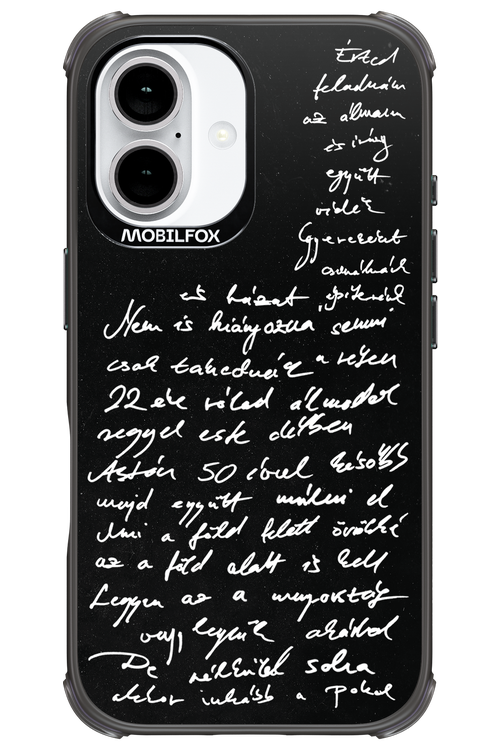 MOBILFOX
Érted
feladnám
az álmaim
és így
együtt
vidék
Gyerekeket
csinálnánk
és házat építenénk
Nem is hiányozna semmi
csak takednék a vesen
22 éve rólad álmodok
reggel este délben
Aztán 50 évvel később
majd együtt múlni el
Ami a föld felett örökké
az a föld alatt is kell
Legyen az a mennyország
vagy legyünk akárhol
De nélküled soha
akkor inkább a pokol